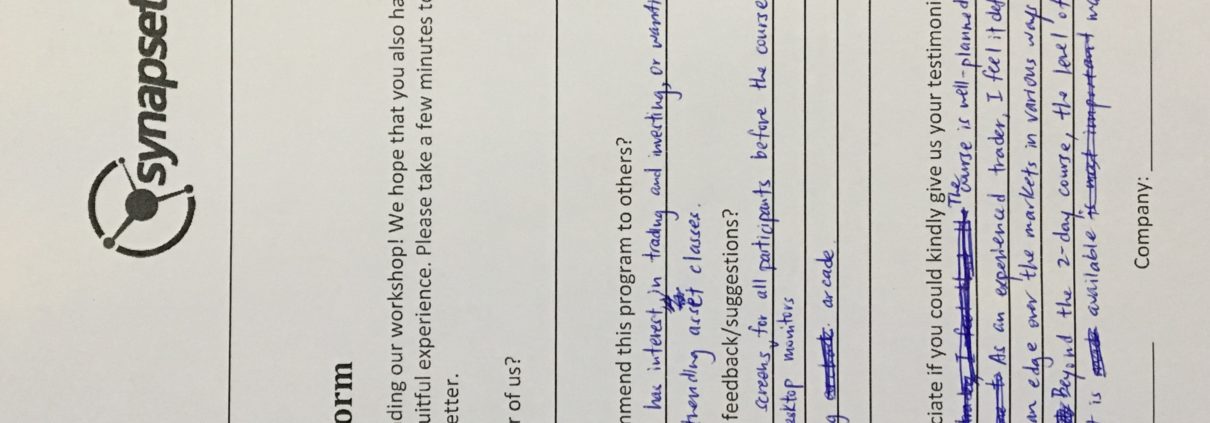 synapset
orm
ding our workshop! We hope that you also ha
uitful experience. Please take a few minutes to
etter.
r of us?
mmend this program to others?
has interest in trading and investing, or wanti
trending asset classes.
feedback/suggestions?
screens for all participants before the course
esktop monitors
g arcade.
ciate if you could kindly give us your testimoni
The course is well-planned
As an experienced trader, I feel it def
an edge over the markets in various ways
Beyond the 2-day course, the level of
t is available is most important wa
Company: